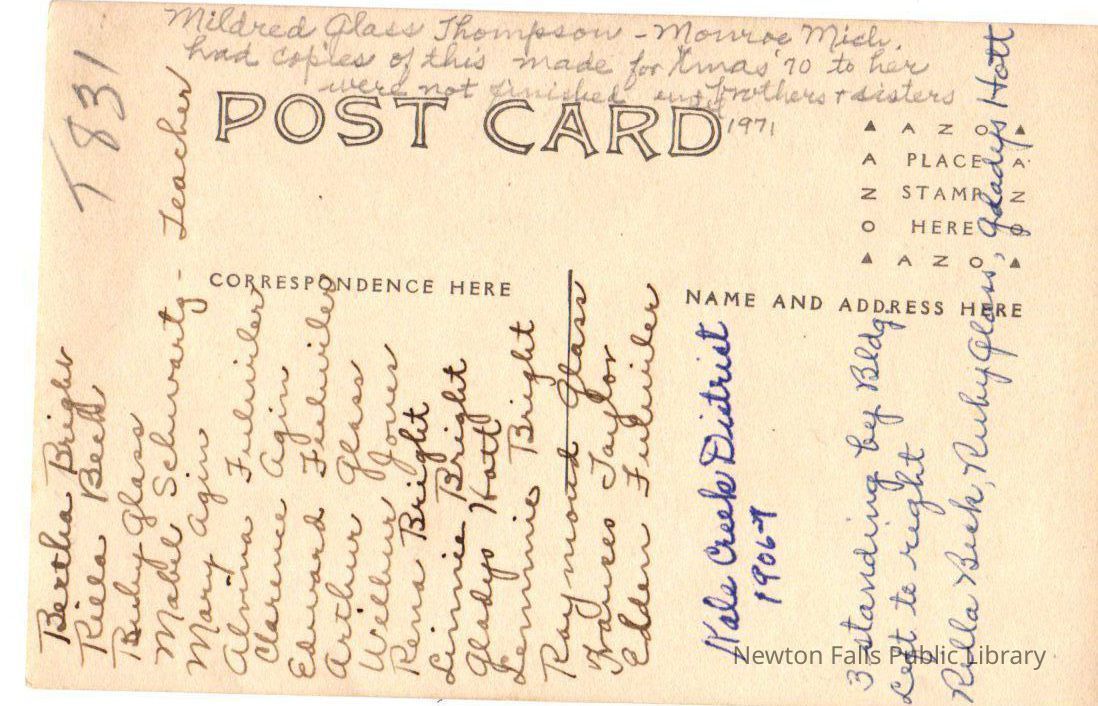 Mildred Glass Thompson - Monroe Mich.
had copies of this made for Xmas '70 to her
were not finished until brothers + sisters
1971
T 831
POST CARD
▲ A Z O ▲
A PLACE A
Z STAMP Z
O HERE O
▲ A Z O ▲
CORRESPONDENCE HERE
NAME AND ADDRESS HERE
Bertha Bright
Rilla Beek
Ruby Glass
Mabel Schwartz - Teacher
Mary Agin
Almina Fulwiler
Clarence Agin
Edward Fulwiler
Arthur Glass
Wilbur Jones
Rena Bright
Linnie Bright
Gladys Hott
Lennie Bright
Raymond Glass
Frances Taylor
Eldon Fulwiler
Kale Creek District
1906-7
3 standing by Bldg
Left to right
Rilla Beek, Ruby Glass, Gladys Hott
Newton Falls Public Library